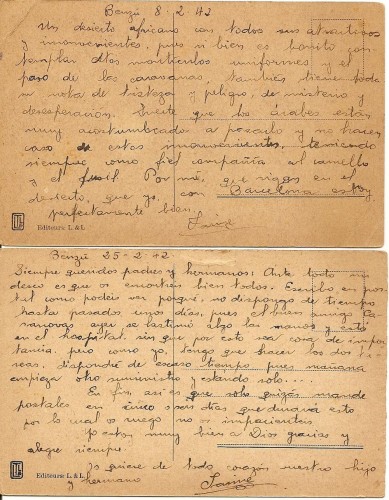 Benzú 8-2-42
Un desierto africano con todos sus atractivos
y inconvenientes, pues si bien es bonito con-
templar altos montículos uniformes y el
paso de las caravanas, también tiene toda
su nota de tristeza y peligro, de misterio y
desesperación. Suerte que los árabes están
muy acostumbrados a pasarlo y no hacen
caso de estos inconvenientes, teniendo
siempre como fiel compañía al camello
y el fusil. Por mí, que vigas en el
desierto, que yo, con Barcelona estoy
perfectamente bien.
Jaime
Editeurs: L & L
Benzú 25-2-42
Siempre queridos padres y hermanos: Ante todo mi
deseo es que os encontréis bien todos. Escribo en pos-
tal como podéis ver porqué no dispongo de tiempo
hasta pasados unos días, pues el buen amigo Ca-
sanovas ayer se lastimó algo las manos y está
en el hospital, sin que por esto sea cosa de impor-
tancia, pero como yo, tengo que hacer los dos
dispondré de escaso tiempo pues mañana
empieza otro suministro y estando solo...
En fin, así es que solo quizás mande
postales en cinco o seis días que durará esto
por lo cual os ruego no os impacientéis
Yo estoy muy bien a Dios gracias y
alegre siempre.
Os quiere de todo corazón vuestro hijo
y hermano Jaime
Editeurs: L & L